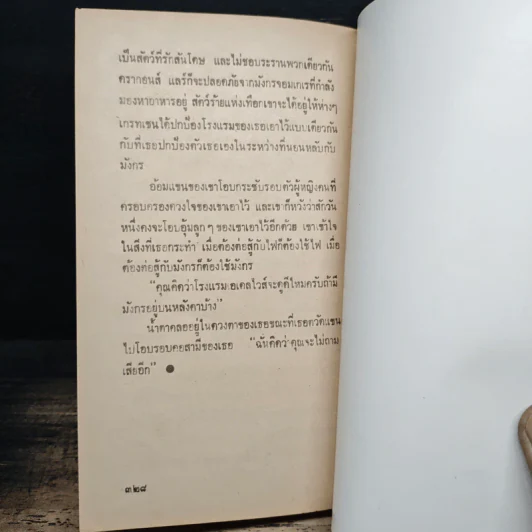 เป็นสัตว์ที่รักสันโดษ และไม่ชอบระรานพวกเดียวกัน
ดรากอนส์ แลร์ก็จะปลอดภัยจากมังกรจอมเกเรที่กำลัง
มองหาอาหารอยู่ สัตว์ร้ายแห่งเทือกเขาจะได้อยู่ให้ห่างๆ
เกรทเชนได้ปกป้องโรงแรมของเธอเอาไว้แบบเดียวกัน
กับที่เธอปกป้องตัวเธอเองในระหว่างที่นอนหลับกับ
มังกร
อ้อมแขนของเขาโอบกระชับรอบตัวผู้หญิงคนที่
ครอบครองดวงใจของเขาเอาไว้ และเขาก็หวังว่าสักวัน
หนึ่งคงจะโอบอุ้มลูกๆ ของเขาเอาไว้อีกด้วย เขาเข้าใจ
ในสิ่งที่เธอกระทำ เมื่อต้องต่อสู้กับไฟก็ต้องใช้ไฟ เมื่อ
ต้องต่อสู้กับมังกรก็ต้องใช้มังกร
"คุณคิดว่าโรงแรมเอเดลไวส์จะดูดีไหมครับถ้ามี
มังกรอยู่บนหลังคาบ้าง"
น้ำตาคลออยู่ในดวงตาของเธอขณะที่เธอตวัดแขน
ไปโอบรอบคอสามีของเธอ "ฉันคิดว่าคุณจะไม่ถาม
เสียอีก" ●
๓๒๘